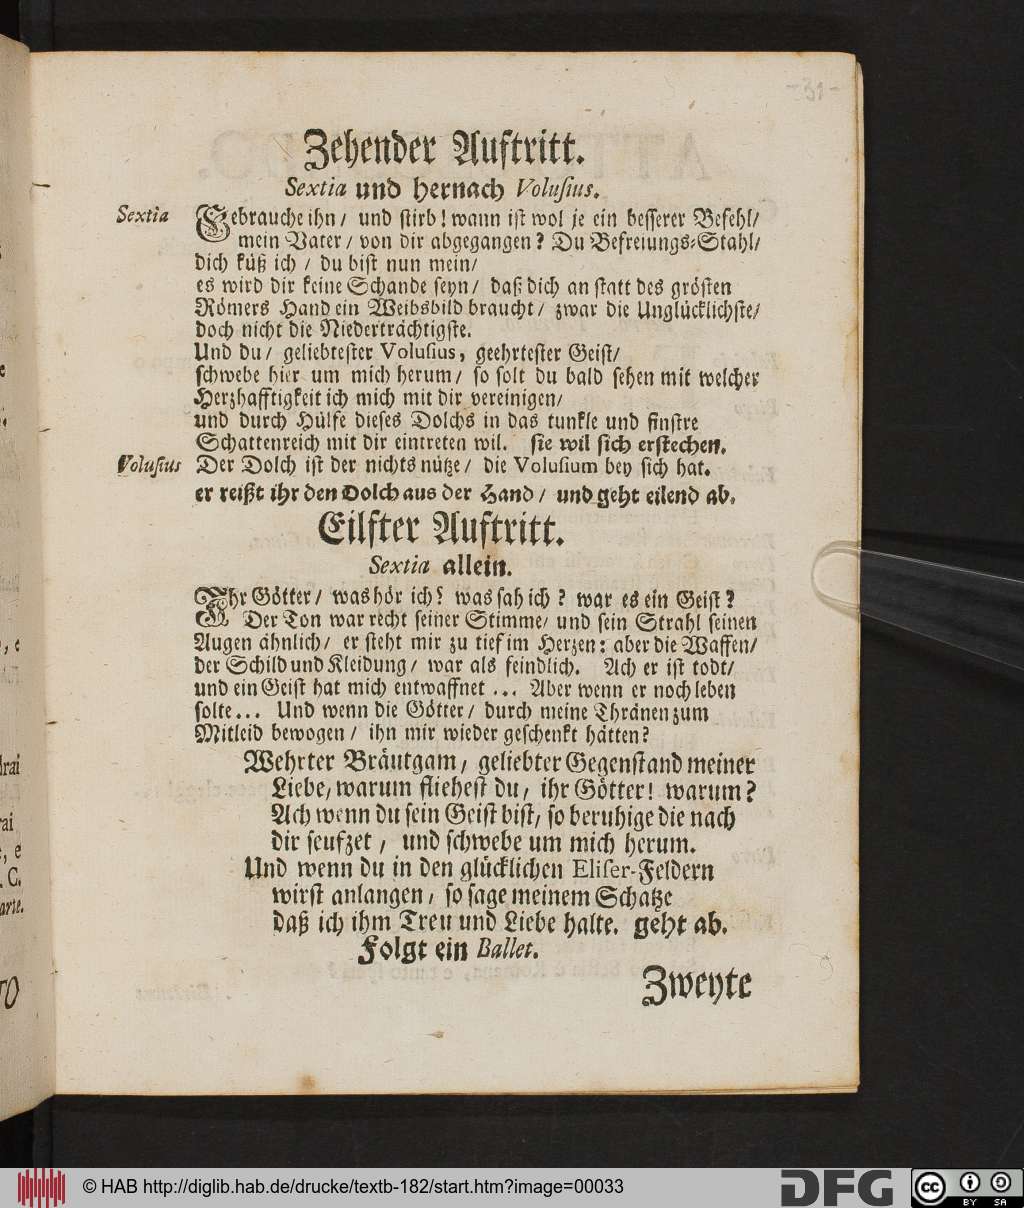 -31-
Zehender Auftritt.
Sextia und hernach Voluſius.
Sextia Gebrauche ihn/ und ſtirb! wann iſt wol je ein beſſerer Befehl/
mein Vater/ von dir abgegangen? Du Befreiungs-Stahl/
dich küß ich / du biſt nun mein/
es wird dir keine Schande ſeyn/ daß dich an ſtatt des gröſten
Römers Hand ein Weibsbild braucht/ zwar die Unglücklichſte/
doch nicht die Niederträchtigſte.
Und du/ geliebteſter Voluſius, geehrteſter Geiſt/
ſchwebe hier um mich herum/ ſo ſolt du bald ſehen mit welcher
Herzhafftigkeit ich mich mit dir vereinigen/
und durch Hülfe dieſes Dolchs in das tunkle und finſtre
Schattenreich mit dir eintreten wil. ſie wil ſich erſtechen.
Voluſius Der Dolch iſt der nichts nütze/ die Voluſium bey ſich hat.
er reißt ihr den Dolch aus der Hand/ und geht eilend ab.
Eilfter Auftritt.
Sextia allein.
Ihr Götter/ was hör ich? was ſah ich? war es ein Geiſt?
Der Ton war recht ſeiner Stimme/ und ſein Strahl ſeinen
Augen ähnlich/ er ſteht mir zu tief im Herzen: aber die Waffen/
der Schild und Kleidung/ war als feindlich. Ach er iſt todt/
und ein Geiſt hat mich entwaffnet ... Aber wenn er noch leben
ſolte... Und wenn die Götter/ durch meine Thränen zum
Mitleid bewogen/ ihn mir wieder geſchenkt hätten?
Wehrter Bräutgam/ geliebter Gegenſtand meiner
Liebe/ warum flieheſt du/ ihr Götter! warum?
Ach wenn du ſein Geiſt biſt/ ſo beruhige die nach
dir ſeufzet/ und ſchwebe um mich herum.
Und wenn du in den glücklichen Eliſer-Feldern
wirſt anlangen/ ſo ſage meinem Schatze
daß ich ihm Treu und Liebe halte. geht ab.
Folgt ein Ballet.
Zweyte
drai
rai
, e
. C.
arte.
TO
© HAB http://diglib.hab.de/drucke/textb-182/start.htm?image=00033
DFG
cc BY SA